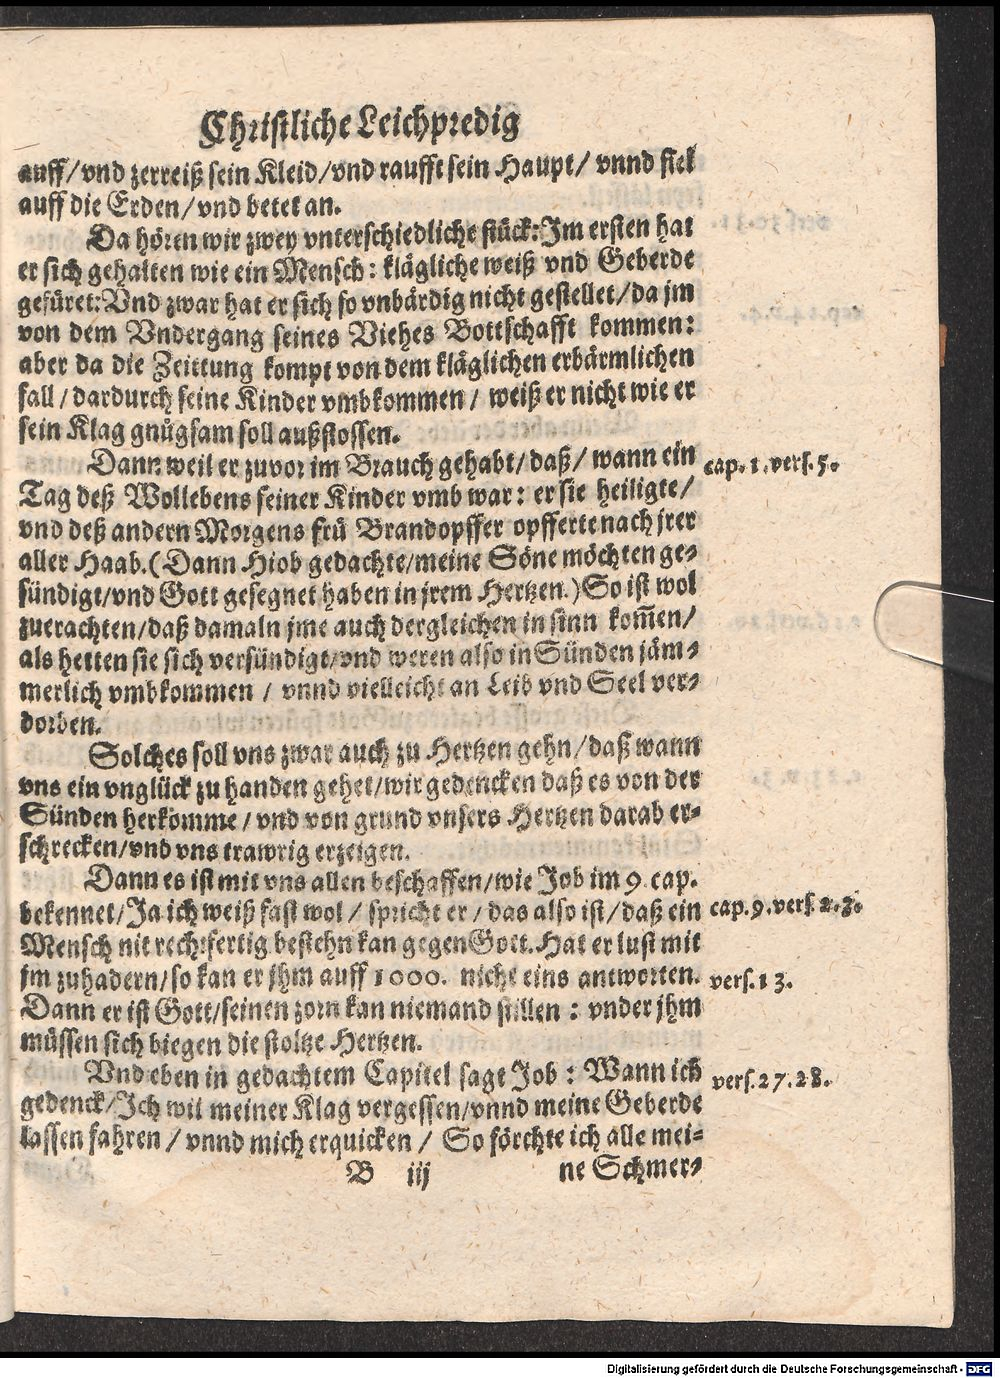 Christliche Leichpredig
auff/ vnd zerreiß sein Kleid/ vnd raufft sein Haupt/ vnnd fiel
auff die Erden/ vnd betet an.
Da hören wir zwey vnterschiedliche stück: Im ersten hat
er sich gehalten wie ein Mensch: klägliche weiß vnd Geberde
gefüret: Vnd zwar hat er sich so vnbärdig nicht gestellet/ da jm
von dem Vndergang seines Viehes Bottschafft kommen:
aber da die Zeittung kompt von dem kläglichen erbärmlichen
fall/ dardurch seine Kinder vmbkommen/ weiß er nicht wie er
sein Klag gnügsam soll außstossen.
Dann weil er zuvor im Brauch gehabt/ daß/ wann ein
cap. 1. vers. 5.
Tag deß Wollebens seiner Kinder vmb war: er sie heiligte/
vnd deß andern Morgens frü Brandopffer opfferte nach jrer
aller Haab. (Dann Hiob gedachte/ meine Söne möchten ge-
sündigt/ vnd Gott gesegnet haben in jrem Hertzen.) So ist wol
zuerachten/ daß damaln jme auch dergleichen in sinn kom̃en/
als hetten sie sich versündigt/ vnd weren also in Sünden jäm-
merlich vmbkommen/ vnnd vielleicht an Leib vnd Seel ver-
dorben.
Solches soll vns zwar auch zu Hertzen gehn/ daß wann
vns ein vnglück zu handen gehet/ wir gedencken daß es von der
Sünden herkomme/ vnd von grund vnsers Hertzen darab er-
schrecken/ vnd vns trawrig erzeigen.
Dann es ist mit vns allen beschaffen/ wie Job im 9. cap.
bekennet/ Ja ich weiß fast wol/ spricht er/ das also ist/ daß ein
cap. 9. vers. 2. 3.
Mensch nit rechtfertig bestehn kan gegen Gott. Hat er lust mit
jm zuhadern/ so kan er jhm auff 1000. nicht eins antworten.
vers. 13.
Dann er ist Gott/ seinen zorn kan niemand stillen: vnder jhm
müssen sich biegen die stoltze Hertzen.
Vnd eben in gedachtem Capitel sagt Job: Wann ich
vers. 27. 28.
gedenck/ Ich wil meiner Klag vergessen/ vnnd meine Geberde
lassen fahren/ vnnd mich erquicken/ So förchte ich alle mei-
B iij ne Schmer-
Digitalisierung gefördert durch die Deutsche Forschungsgemeinschaft - DFG